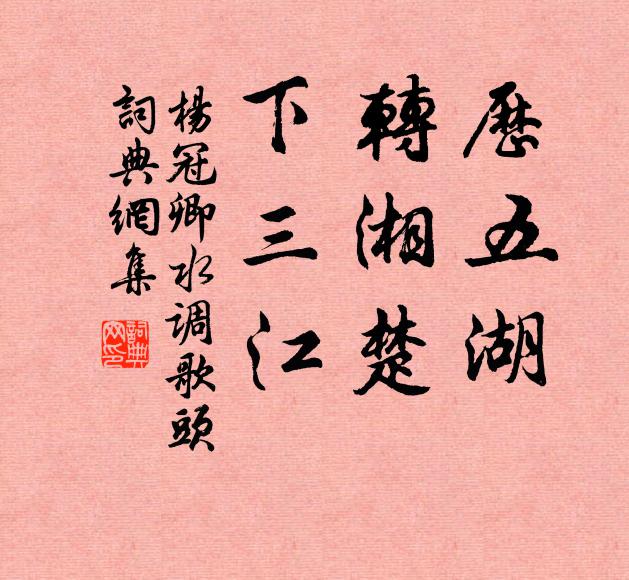 歷五湖
轉湘楚
下三江
楊冠卿水调歌頭
詞典網集
詞典网印